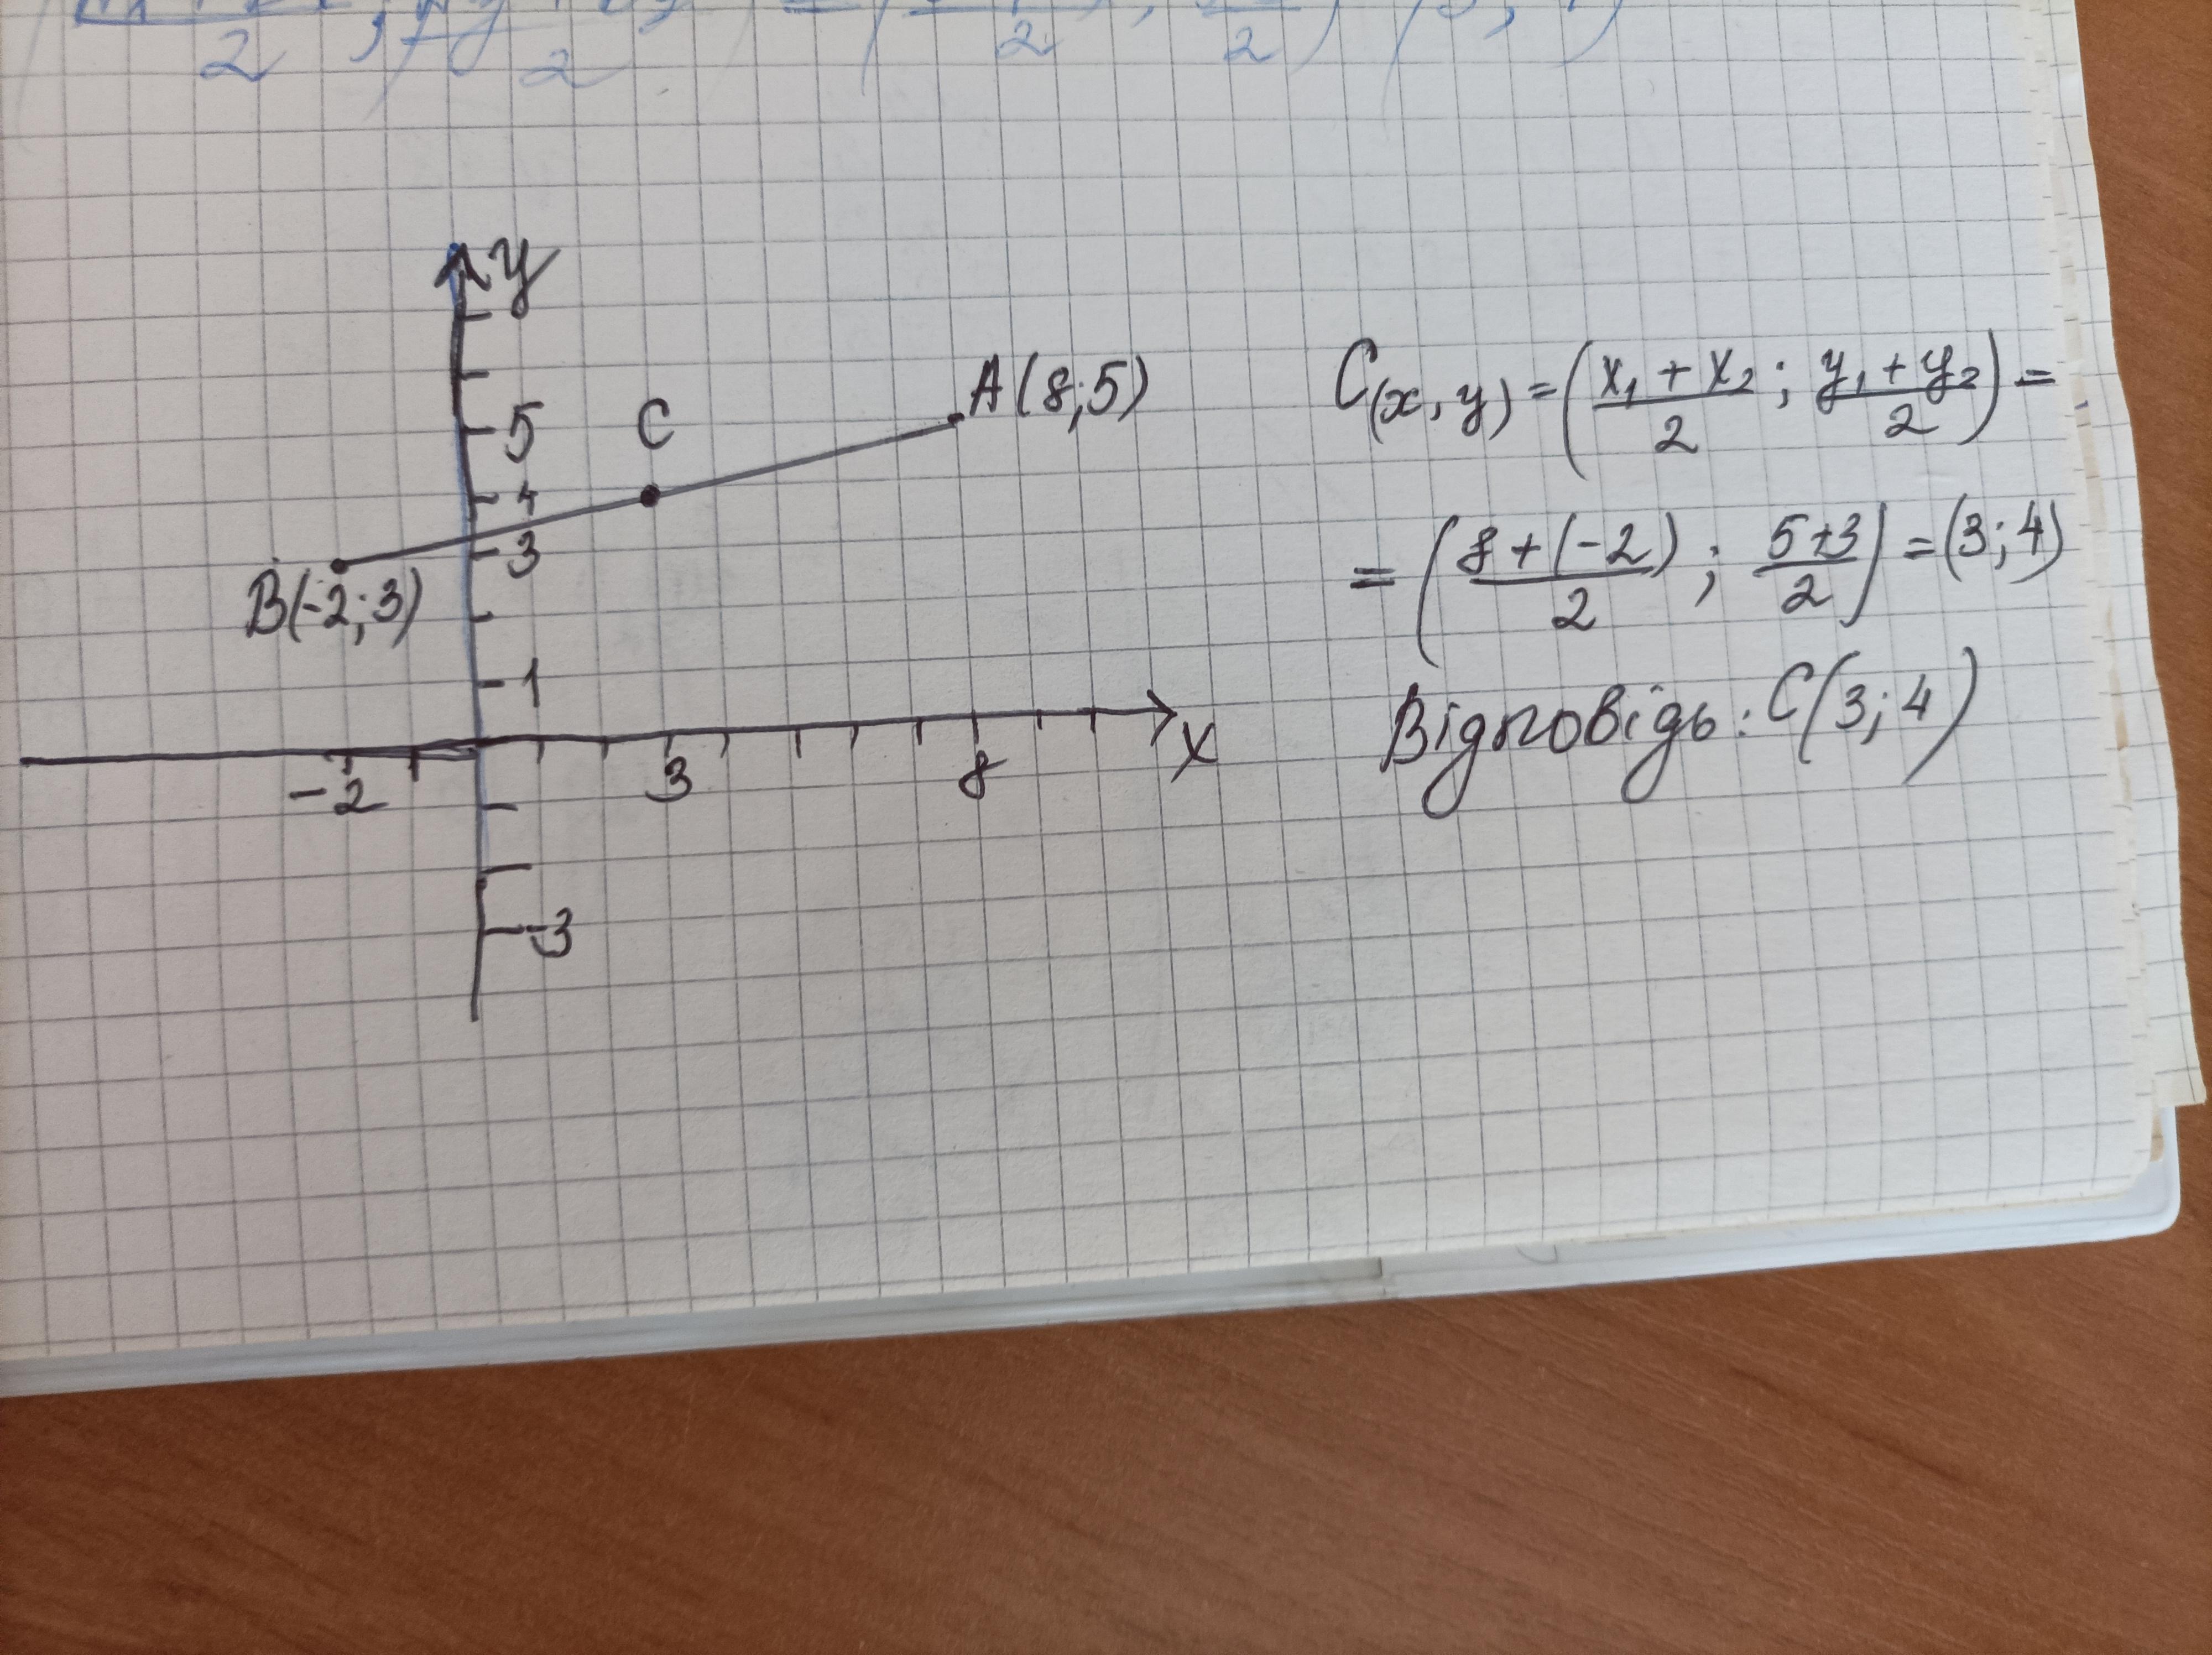 y
5
C
A(8;5)
4
3
B(-2;3)
1
-2
3
8
x
-3
C(x,y) = (x₁ + x₂ / 2 ; y₁ + y₂ / 2) =
= (8 + (-2) / 2 ; 5+3 / 2) = (3;4)
Відповідь: C(3;4)